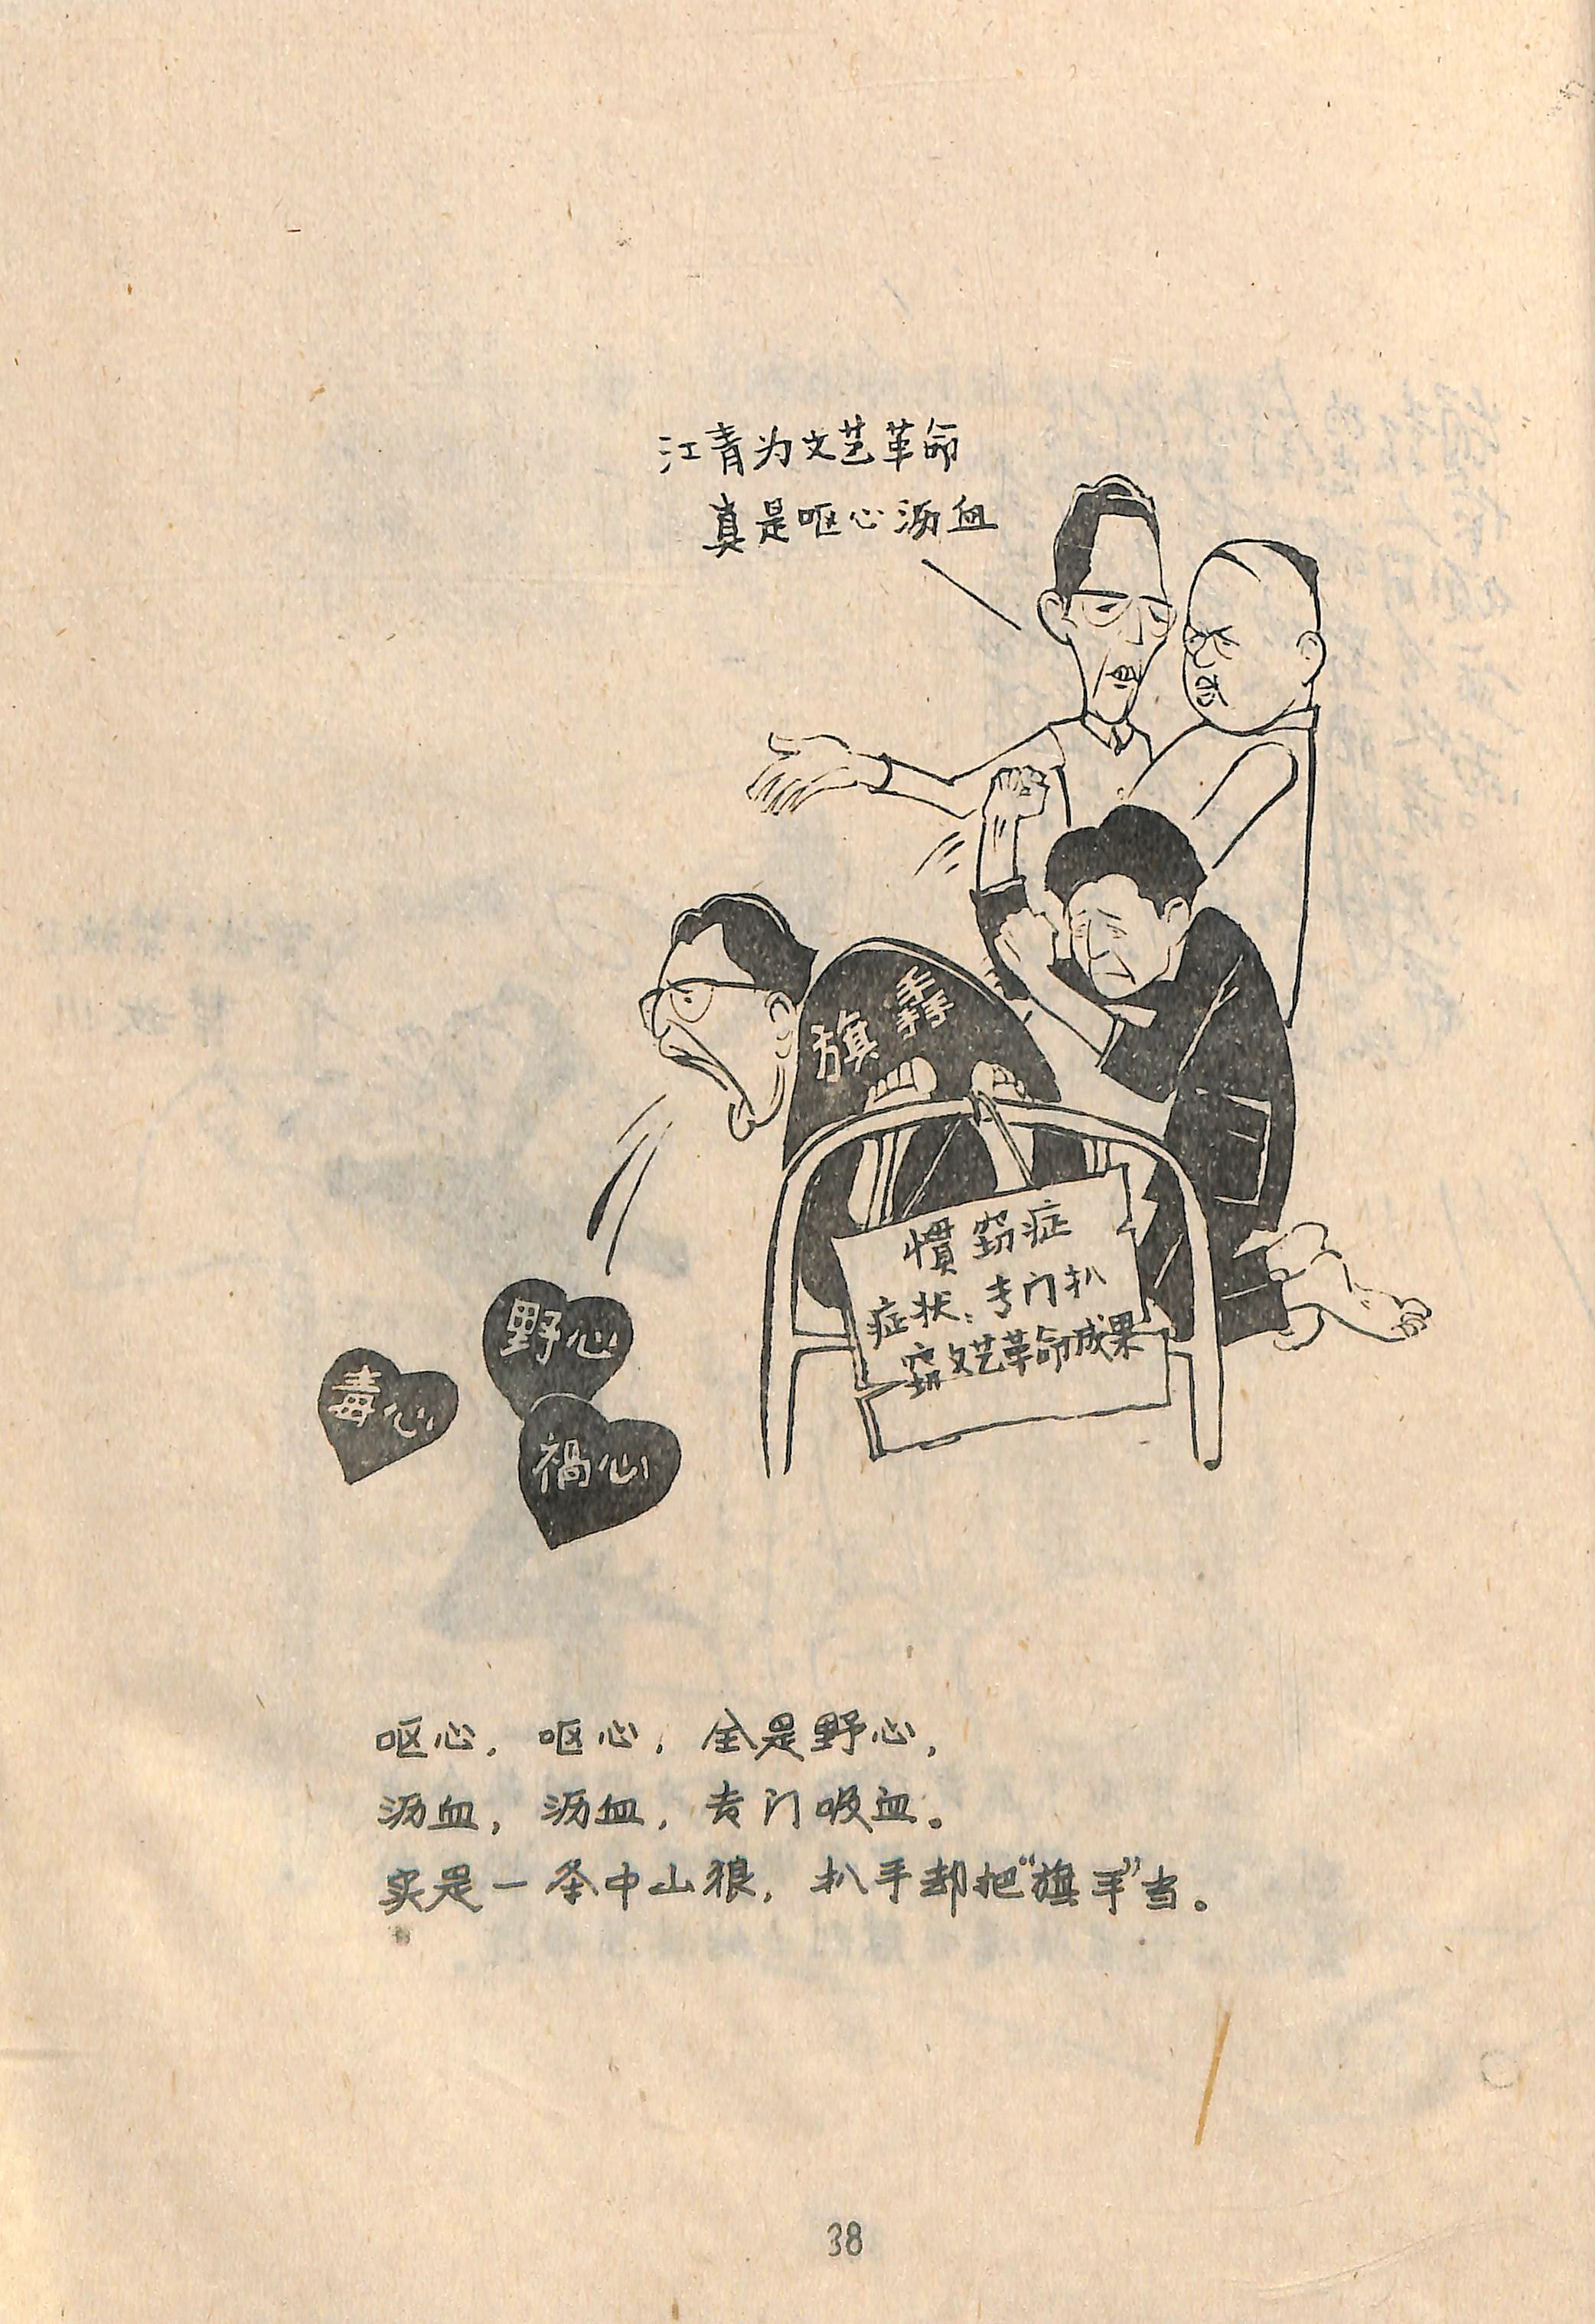 江青为文艺革命
真是呕心沥血
旗掱
惯窃症
症状:专门扒
窃文艺革命成果
野心
毒心
祸心
呕心,呕心,全是野心,
沥血,沥血,专门吸血。
实是一条中山狼,扒手却把“旗手”当。
38